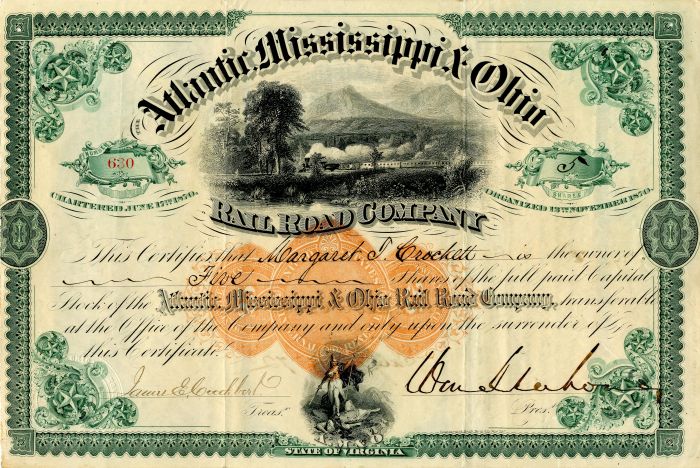 Atlantic, Mississippi & Ohio
630
5
SHARES
CHARTERED JUNE 17TH 1870.
ORGANIZED 12TH NOVEMBER 1870.
RAIL ROAD COMPANY
This Certifies that Margaret T. Crockett is the owner of
Five Shares of the full paid Capital
Stock of the Atlantic, Mississippi & Ohio Rail Road Company, transferable
at the Office of the Company and only upon the surrender of
this Certificate.
Treasr.
Wm Mahone
Prest.
STATE OF VIRGINIA